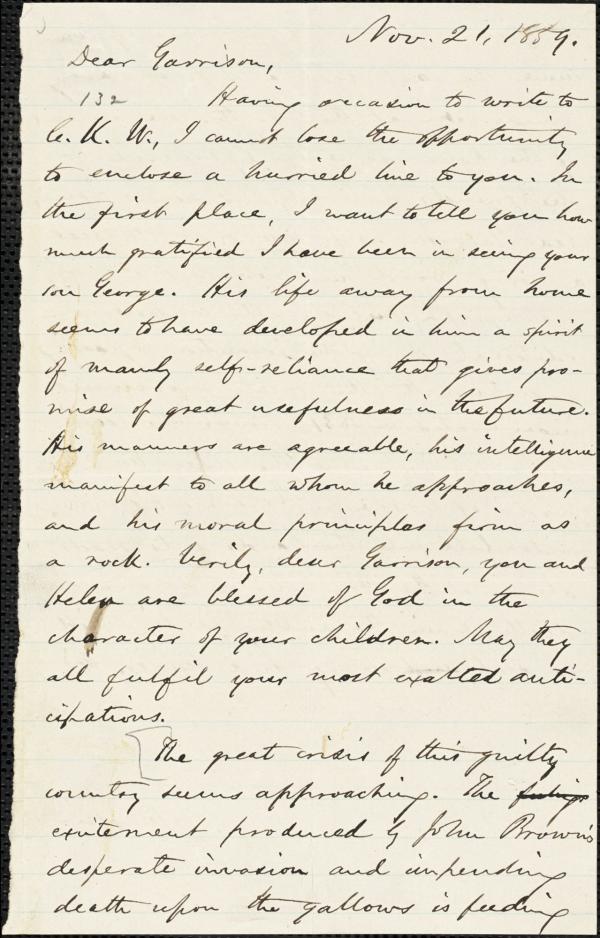 Nov. 21, 1859.
Dear Garrison,
132 Having occasion to write to
C. K. W., I cannot lose the opportunity
to enclose a hurried line to you. In
the first place, I want to tell you how
much gratified I have been in seeing your
son George. His life away from home
seems to have developed in him a spirit
of manly self-reliance that gives pro-
mise of great usefulness in the future.
His manners are agreeable, his intelligence
manifest to all whom he approaches,
and his moral principles firm as
a rock. Verily, dear Garrison, you and
Helen are blessed of God in the
character of your children. May they
all fulfil your most exalted anti-
cipations.
The great crisis of this guilty
country seems approaching. The
excitement produced by John Brown's
desperate invasion and impending
death upon the gallows is feeding